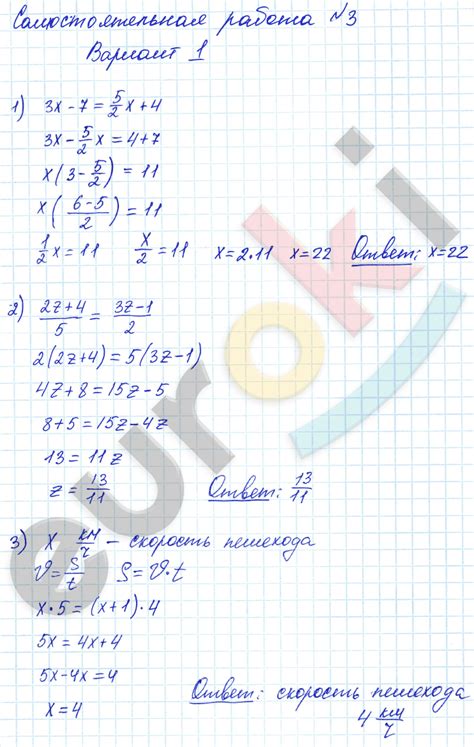 Самостоятельная работа №3
Вариант 1
1) 3x - 7 = 5/2 x + 4
3x - 5/2 x = 4 + 7
x(3 - 5/2) = 11
x((6-5)/2) = 11
1/2 x = 11 x/2 = 11 x = 2·11 x = 22 Ответ: x = 22
2) (2z+4)/5 = (3z-1)/2
2(2z+4) = 5(3z-1)
4z + 8 = 15z - 5
8 + 5 = 15z - 4z
13 = 11z
z = 13/11 Ответ: 13/11
3) x км/ч - скорость пешехода
V = S/t S = V·t
x·5 = (x+1)·4
5x = 4x + 4
5x - 4x = 4
x = 4 Ответ: скорость пешехода
4 км/ч
euroki